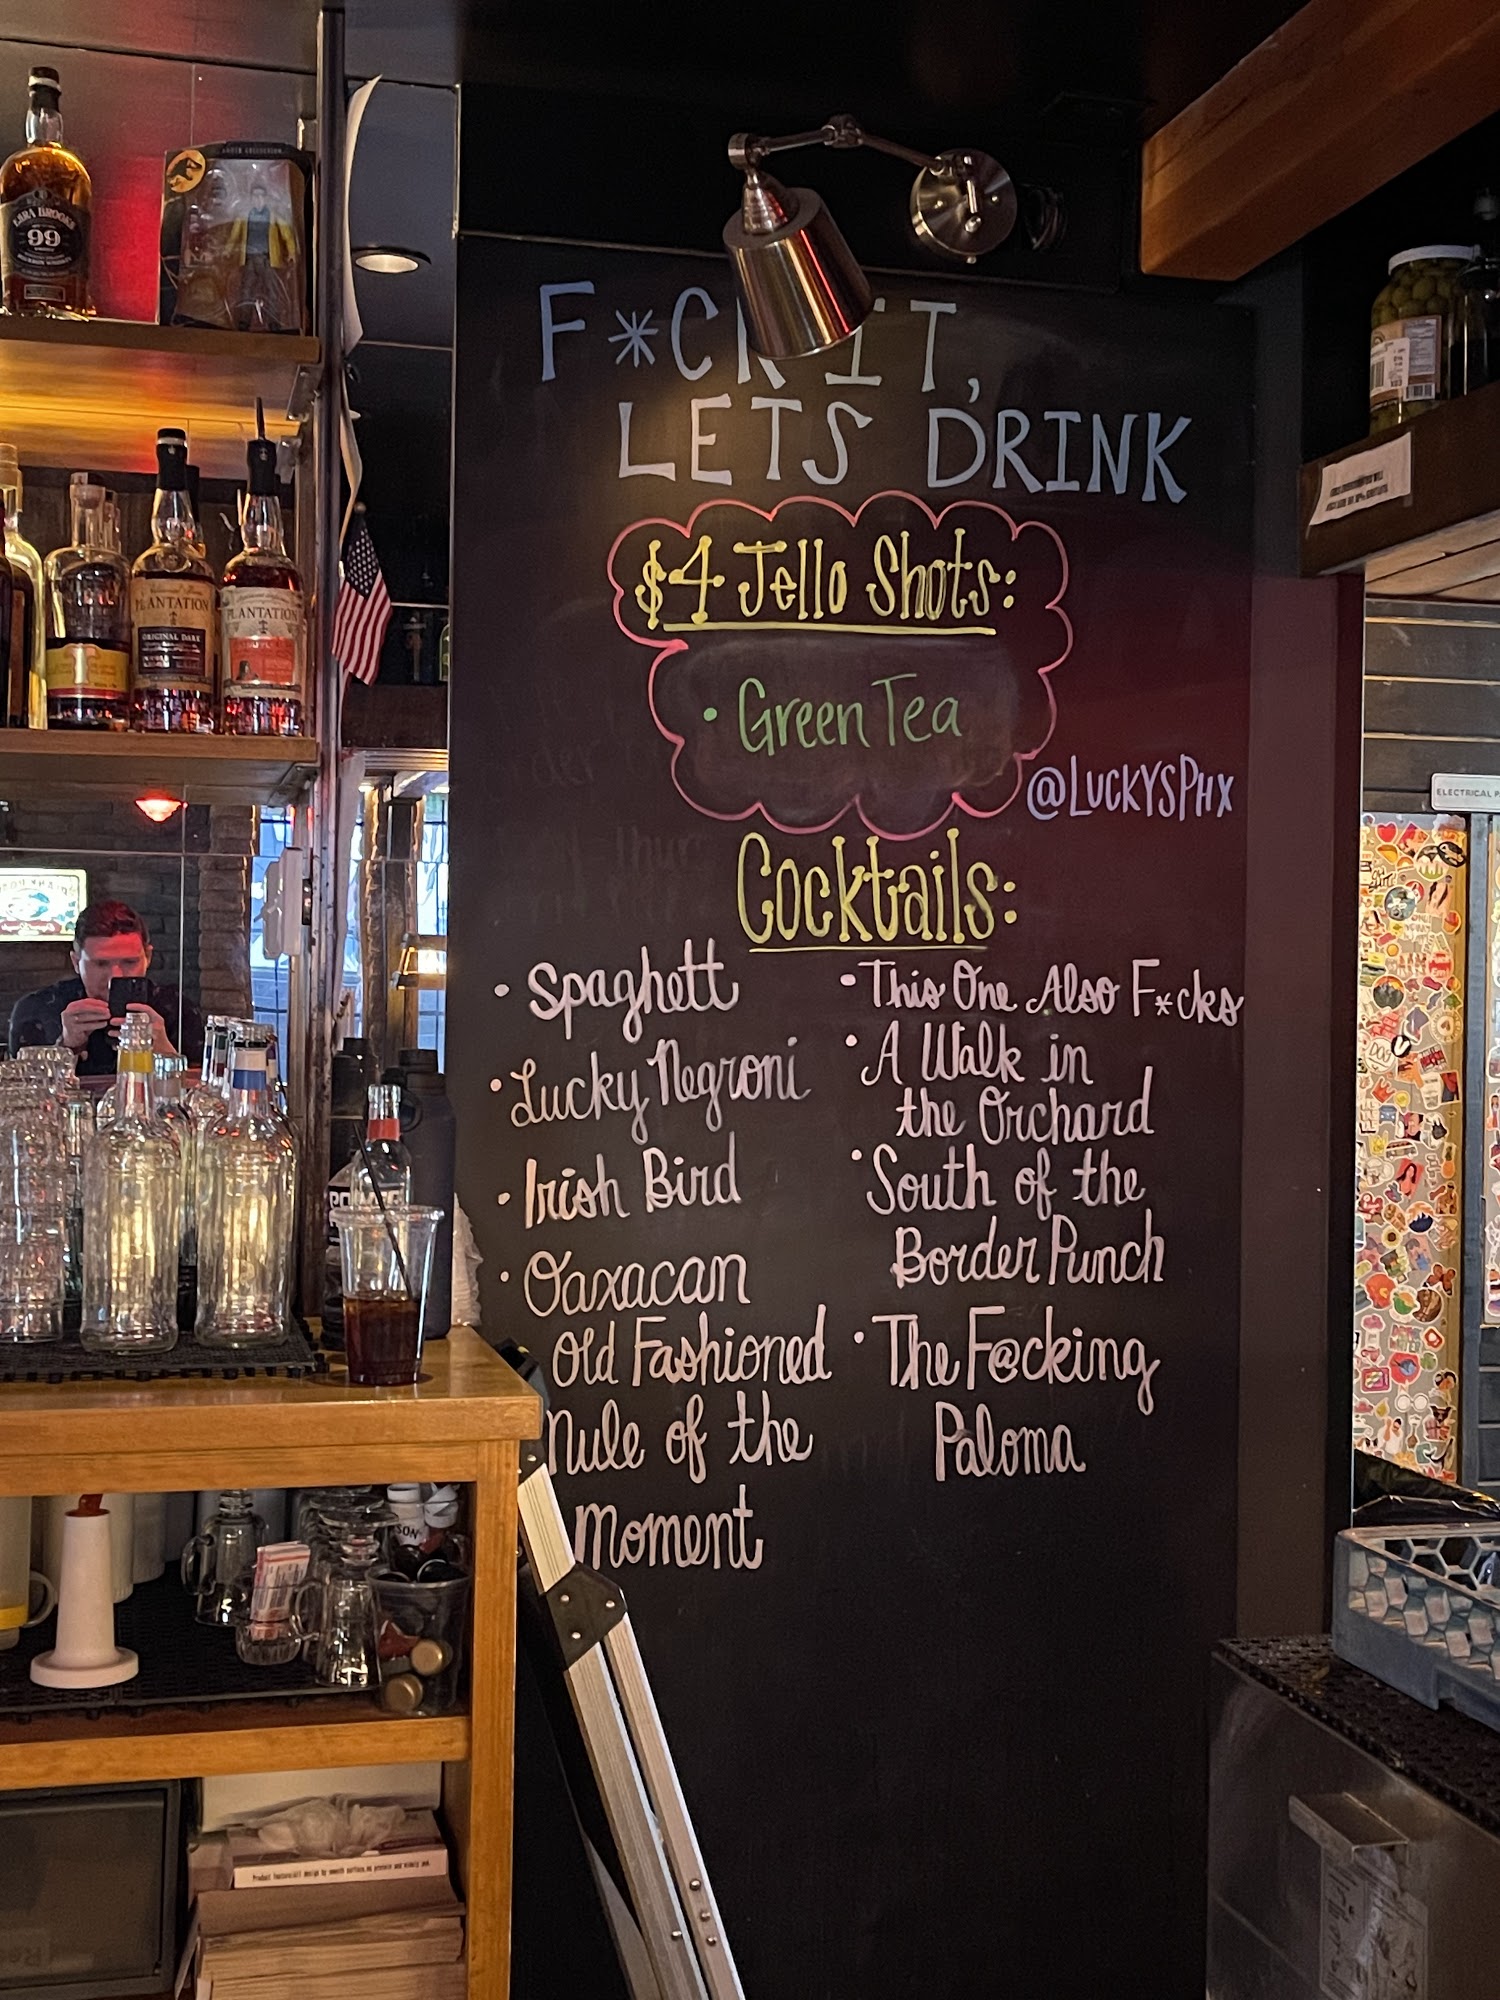 F*CK IT,
LETS DRINK
$4 Jello Shots:
• Green Tea
@LUCKYSPHX
Cocktails:
• Spaghett
• Lucky Negroni
• Irish Bird
• Oaxacan
Old Fashioned
Mule of the
Moment
• This One Also F*cks
• A Walk in
the Orchard
• South of the
Border Punch
• The F@cking
Paloma
EZRA BROOKS
99
PLANTATION
ORIGINAL DARK
PLANTATION
ELECTRICAL